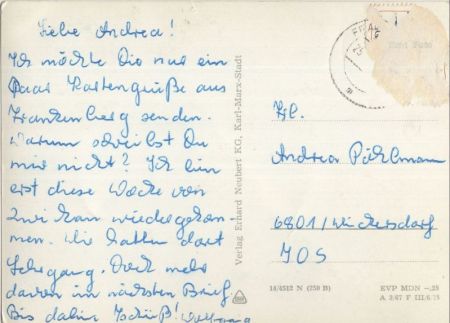 Liebe Andrea!
Ich möchte Dir nur ein
Paar Kartengrüße aus
Frankenberg senden.
Warum schreibst Du
mir nicht? Ich bin
erst diese Woche von
Zwickau wiedergekom-
men. Wir hatten dort
Lehrgang. Doch mehr
davon im nächsten Brief
Bis dahin Tschüß! Wolfgang
Verlag Erhard Neubert KG, Karl-Marx-Stadt
Frl.
Andrea
6801/Wickersdorf
JOS
14/4512 N (250 B)
EVP MDN –,25
A 2/67 F III/6/15